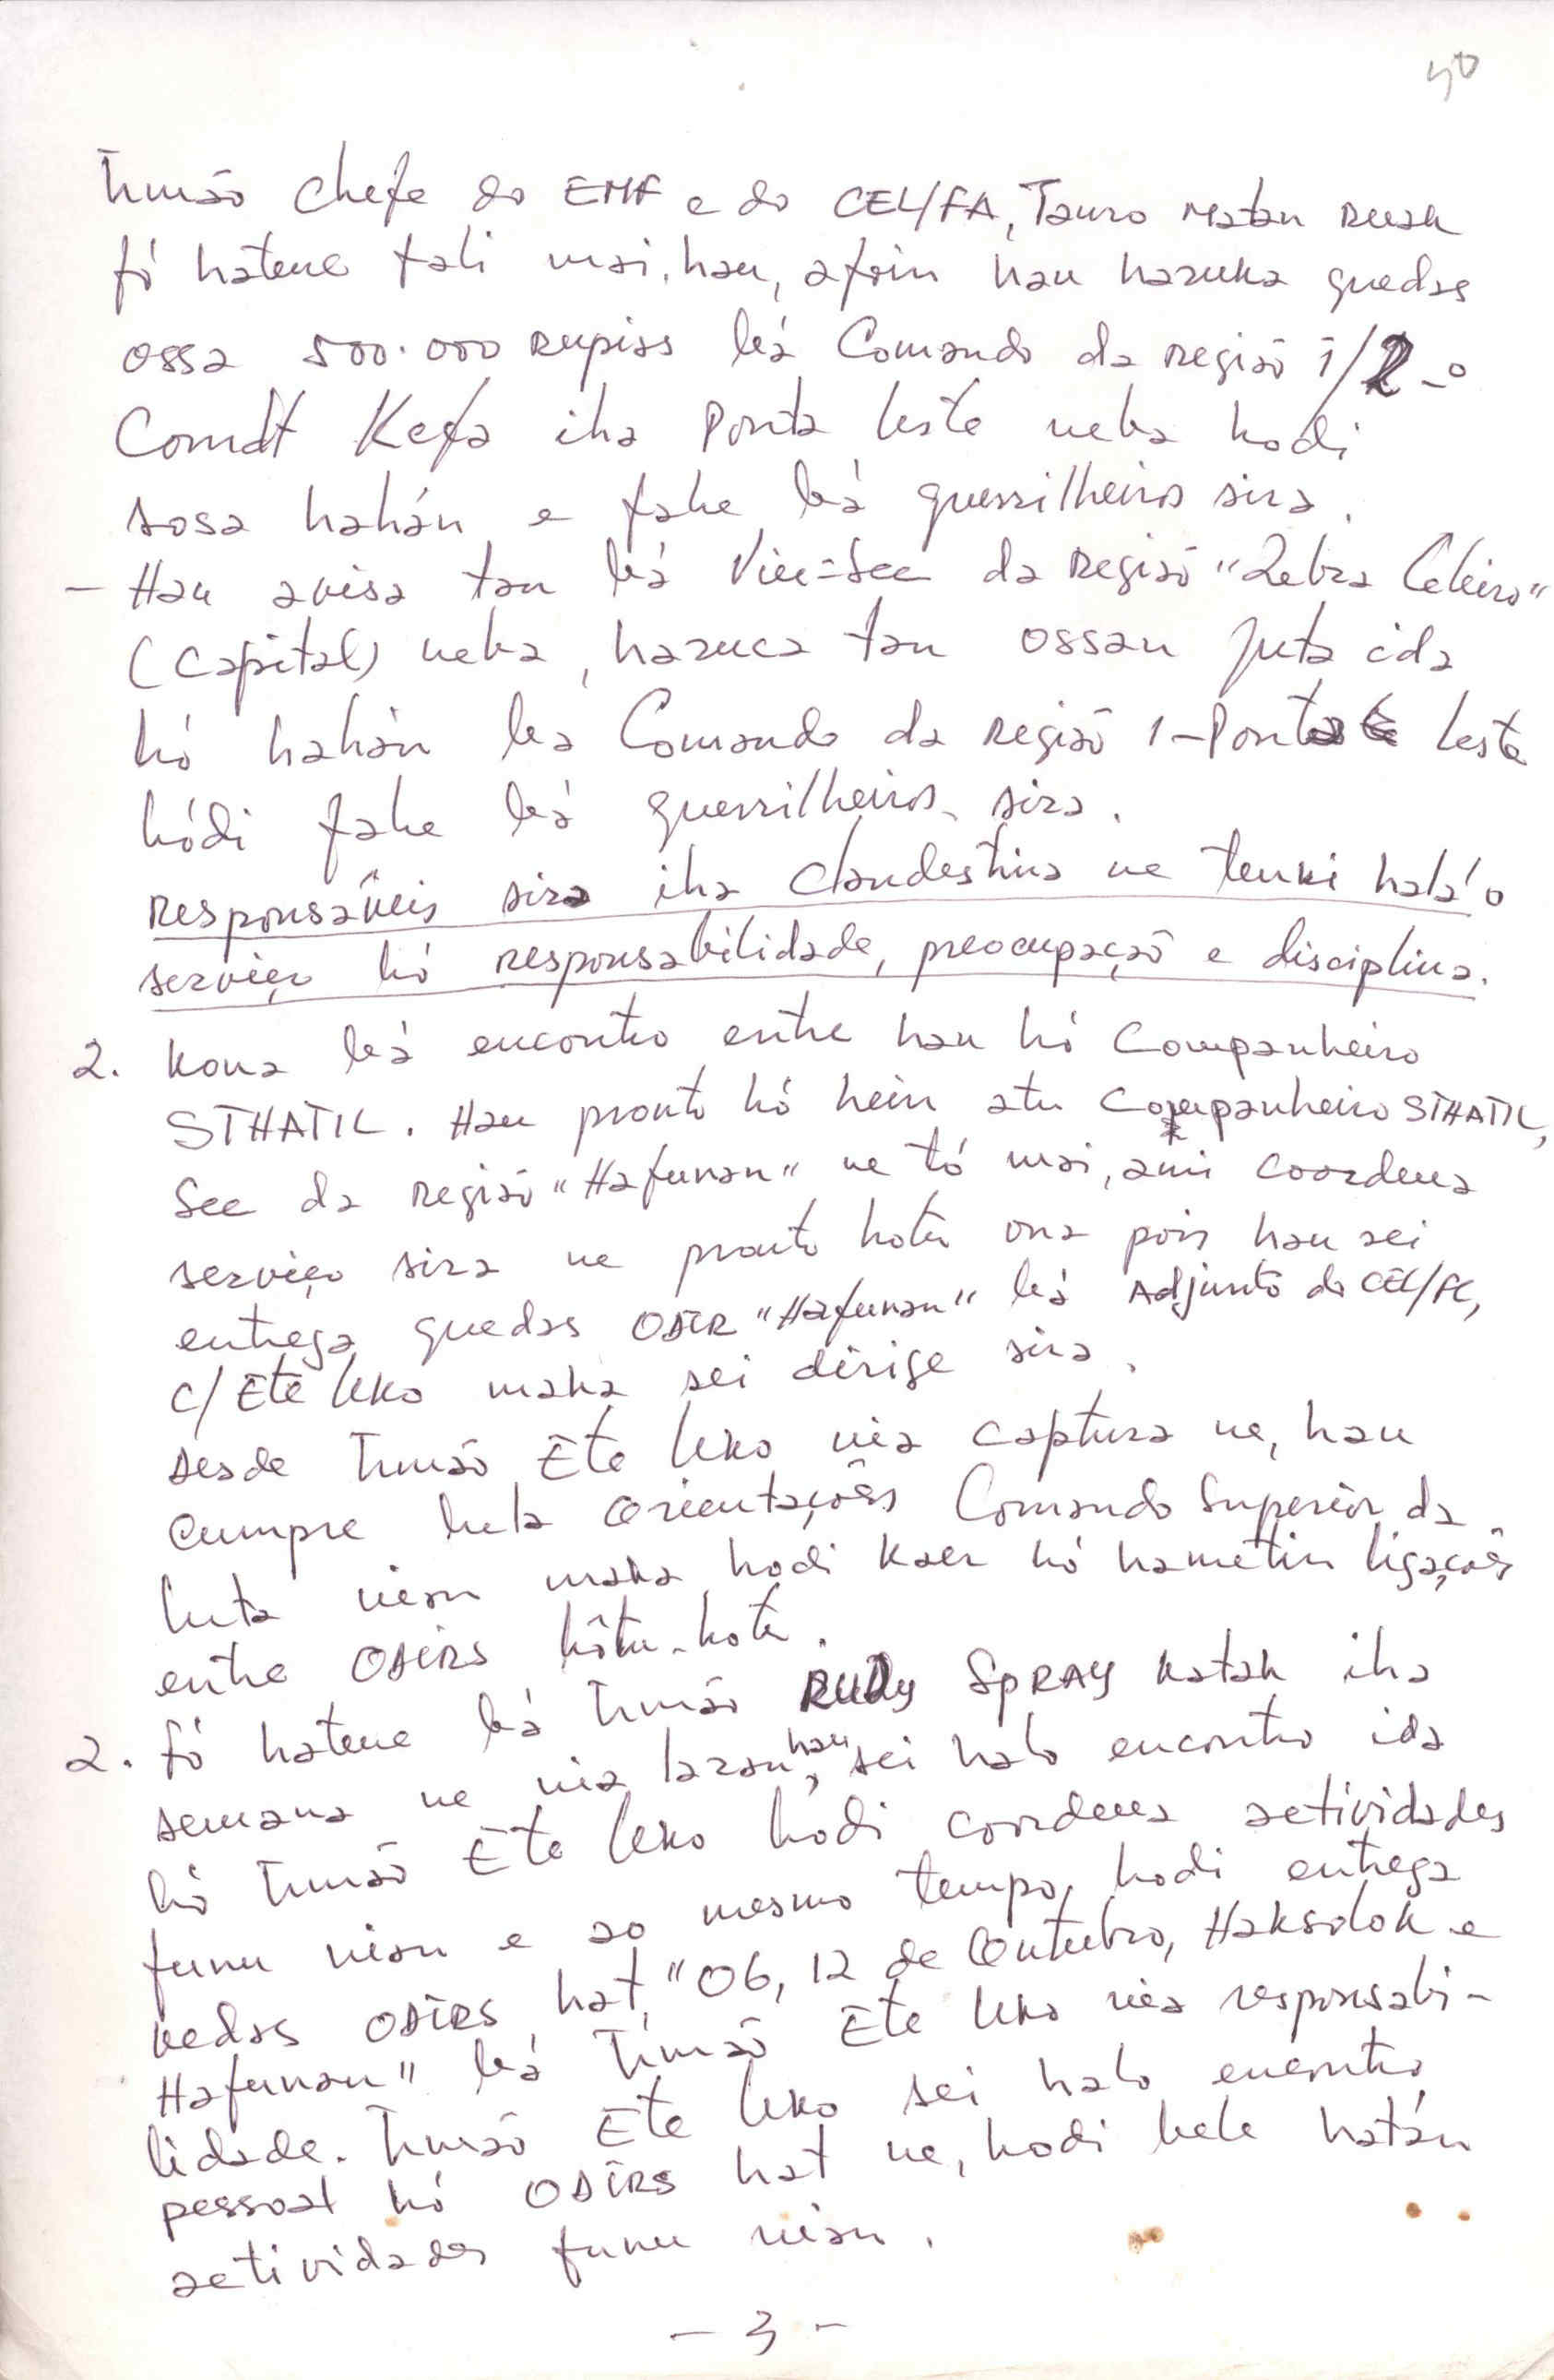 40
Irmão Chefe do EMF e do CEL/FA, Tauro Matan Ruak
fó hatene fali mai hau, afoin hau haruka guedas
ossa 500.000 Rupias bá Comando da Região 1/2 -
Comdt Kefa iha Ponta leste neba hodi
sosa hahán e fahe bá guerrilheiros sira.
- Hau avisa tan bá Vice-Sec da Região "Zebra Celeiro"
(Capital) neba, haruca tan ossan juta ida
hó hahán ba Comando da Região 1-Ponta leste
hódi fahe bá guerrilheiros sira.
Responsáveis sira iha clandestina ne tenki halá'o
serviço hó responsabilidade, preocupação e disciplina.
2. Kona bá encontro entre hau hó Companheiro
STHATIL. Hau pronto hó hein atu Companheiro STHATIL,
Sec da Região "Hafunan" ne tó mai, ami coordena
serviço sira ne pronto hotu ona pois hau sei
entrega guedas ODIR "Hafunan" bá Adjunto do CEL/FC,
C/ Ete leko maka sei dirige sira.
Desde Irmão Ete Uko nia captura ne, hau
cumpre luta orientações Comando Superior da
luta nian maka hodi kaer hó hametin ligações
entre ODIRS hôtu-hotu.
2. fó hatene bá Irmão RUDy SPRAY katak iha
semana ne nia laran, hau sei halo encontro ida
hó Irmão Ete Uko hódi coordena actividades
funu nian e ao mesmo tempo, hodi entrega
kedas ODIRS hat "06, 12 de Outubro, Haksolok e
Hafunan" bá Irmão Ete Uko nia responsabi-
lidade. Irmão Ete Uko sei halo encontro
pessoal hó ODIRS hat ne, hodi bele hatán
actividades funu nian.
- 3 -